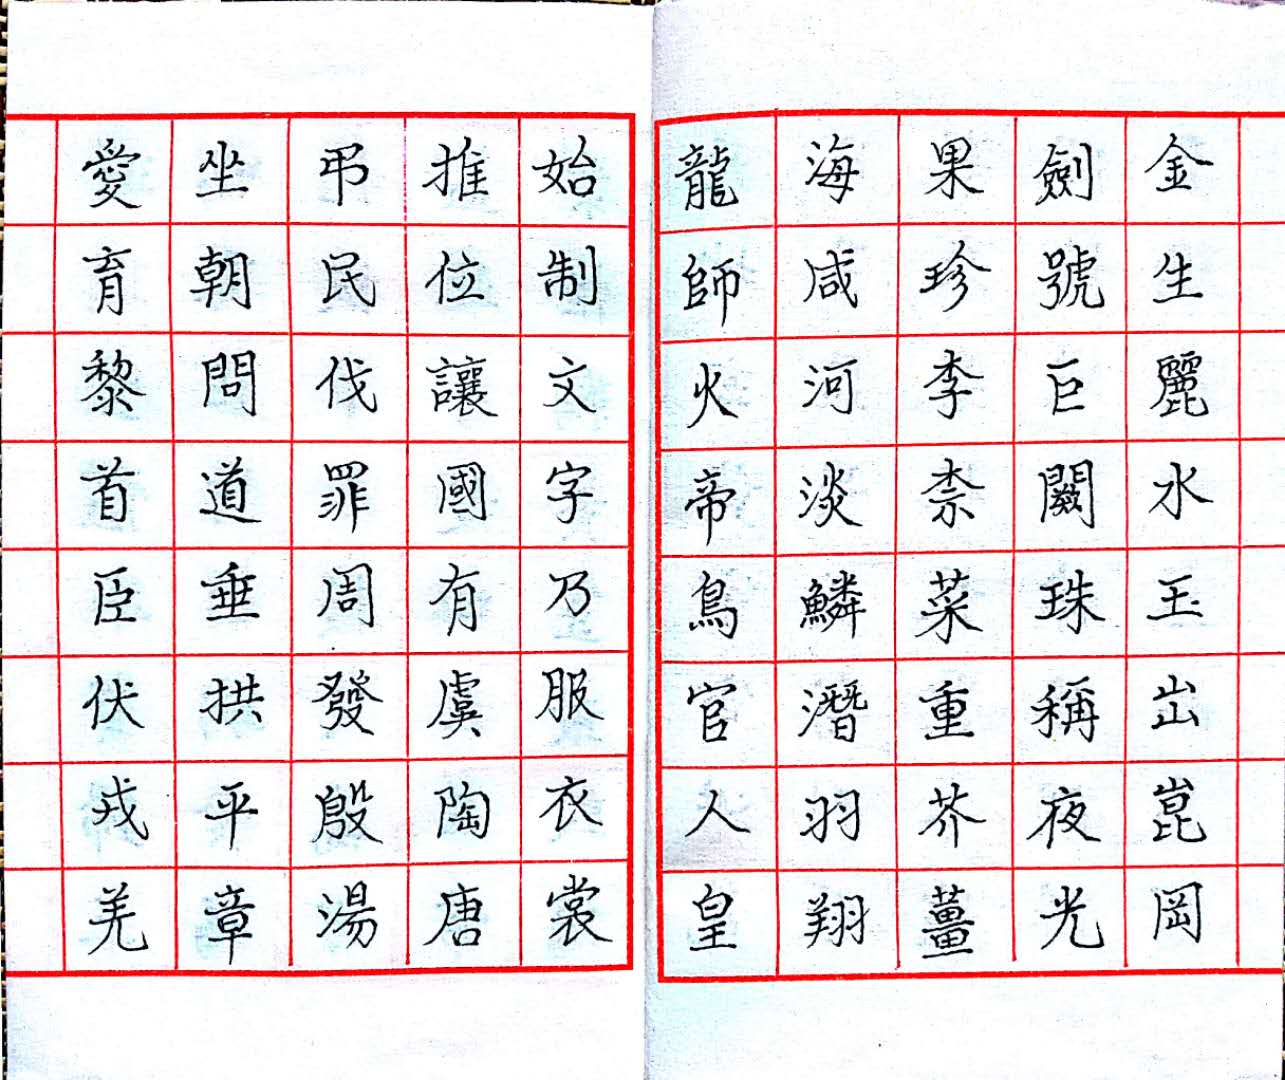 金生麗水玉出崑岡
劍號巨闕珠稱夜光
果珍李柰菜重芥薑
海咸河淡鱗潛羽翔
龍師火帝鳥官人皇
始制文字乃服衣裳
推位讓國有虞陶唐
弔民伐罪周發殷湯
坐朝問道垂拱平章
愛育黎首臣伏戎羌